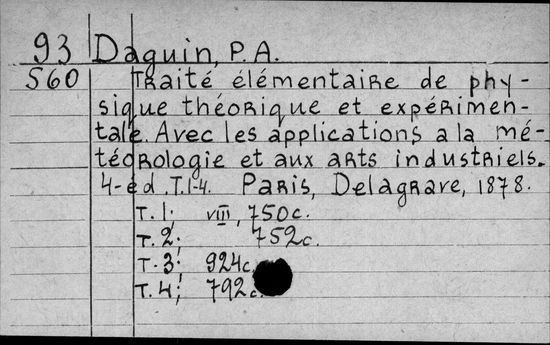 93 Daguin, P. A.
S60 Traité élémentaire de phy-
sique théorique et expérimen-
tale. Avec les applications a la mé-
téorologie et aux arts industriels.
4-éd. T.1-4. Paris, Delagrave, 1878.
T. 1; VIII, 750c.
T. 2; 752c.
T. 3; 924c.
T. 4; 792c.